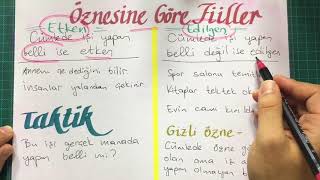 Öznesine Göre Fiiller
Etken
Cümlede işi yapan
belli ise etken
Annem ne dediğini bilir.
insanlar yalandan çekinir.
Taktik
Bu işi gerçek manada
yapan belli mi?
Edilgen
Cümlede işi yapan
belli değil ise edilgen
Spor salonu
Kitaplar tektek
Evin camı
Gizli Özne =
Cümlede özne
olan ama iş
yapan olmayan